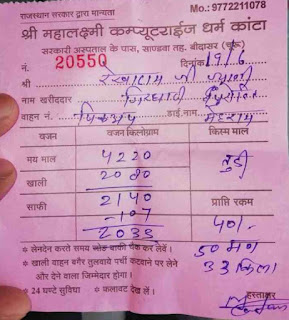 राजस्थान सरकार द्वारा मान्यता Mo.: 9772211078
श्री महालक्ष्मी कम्प्यूटराईज धर्म कांटा
सरकारी अस्पताल के पास, साण्डवा तह. बीदासर (चूरू)
नं. 20550 दिनांक 19/6
श्री
नाम खरीददार
वाहन नं. पिकअप डाई.नाम
वजन वजन किलोग्राम किस्म माल
मय माल 4220 तुडी
खाली 2080
साफी 2140 प्राप्ति रकम
-107 40/-
2033
लेनदेन करते समय बाकी चैक कर लेवें। 50 मण
खाली वाहन बगैर तुलवाये पर्ची कटवाने पर लेने 33 किला
और देने वाला जिम्मेदार होगा।
24 घण्टे सुविधा * फलावट देख लें। हस्ताक्षर